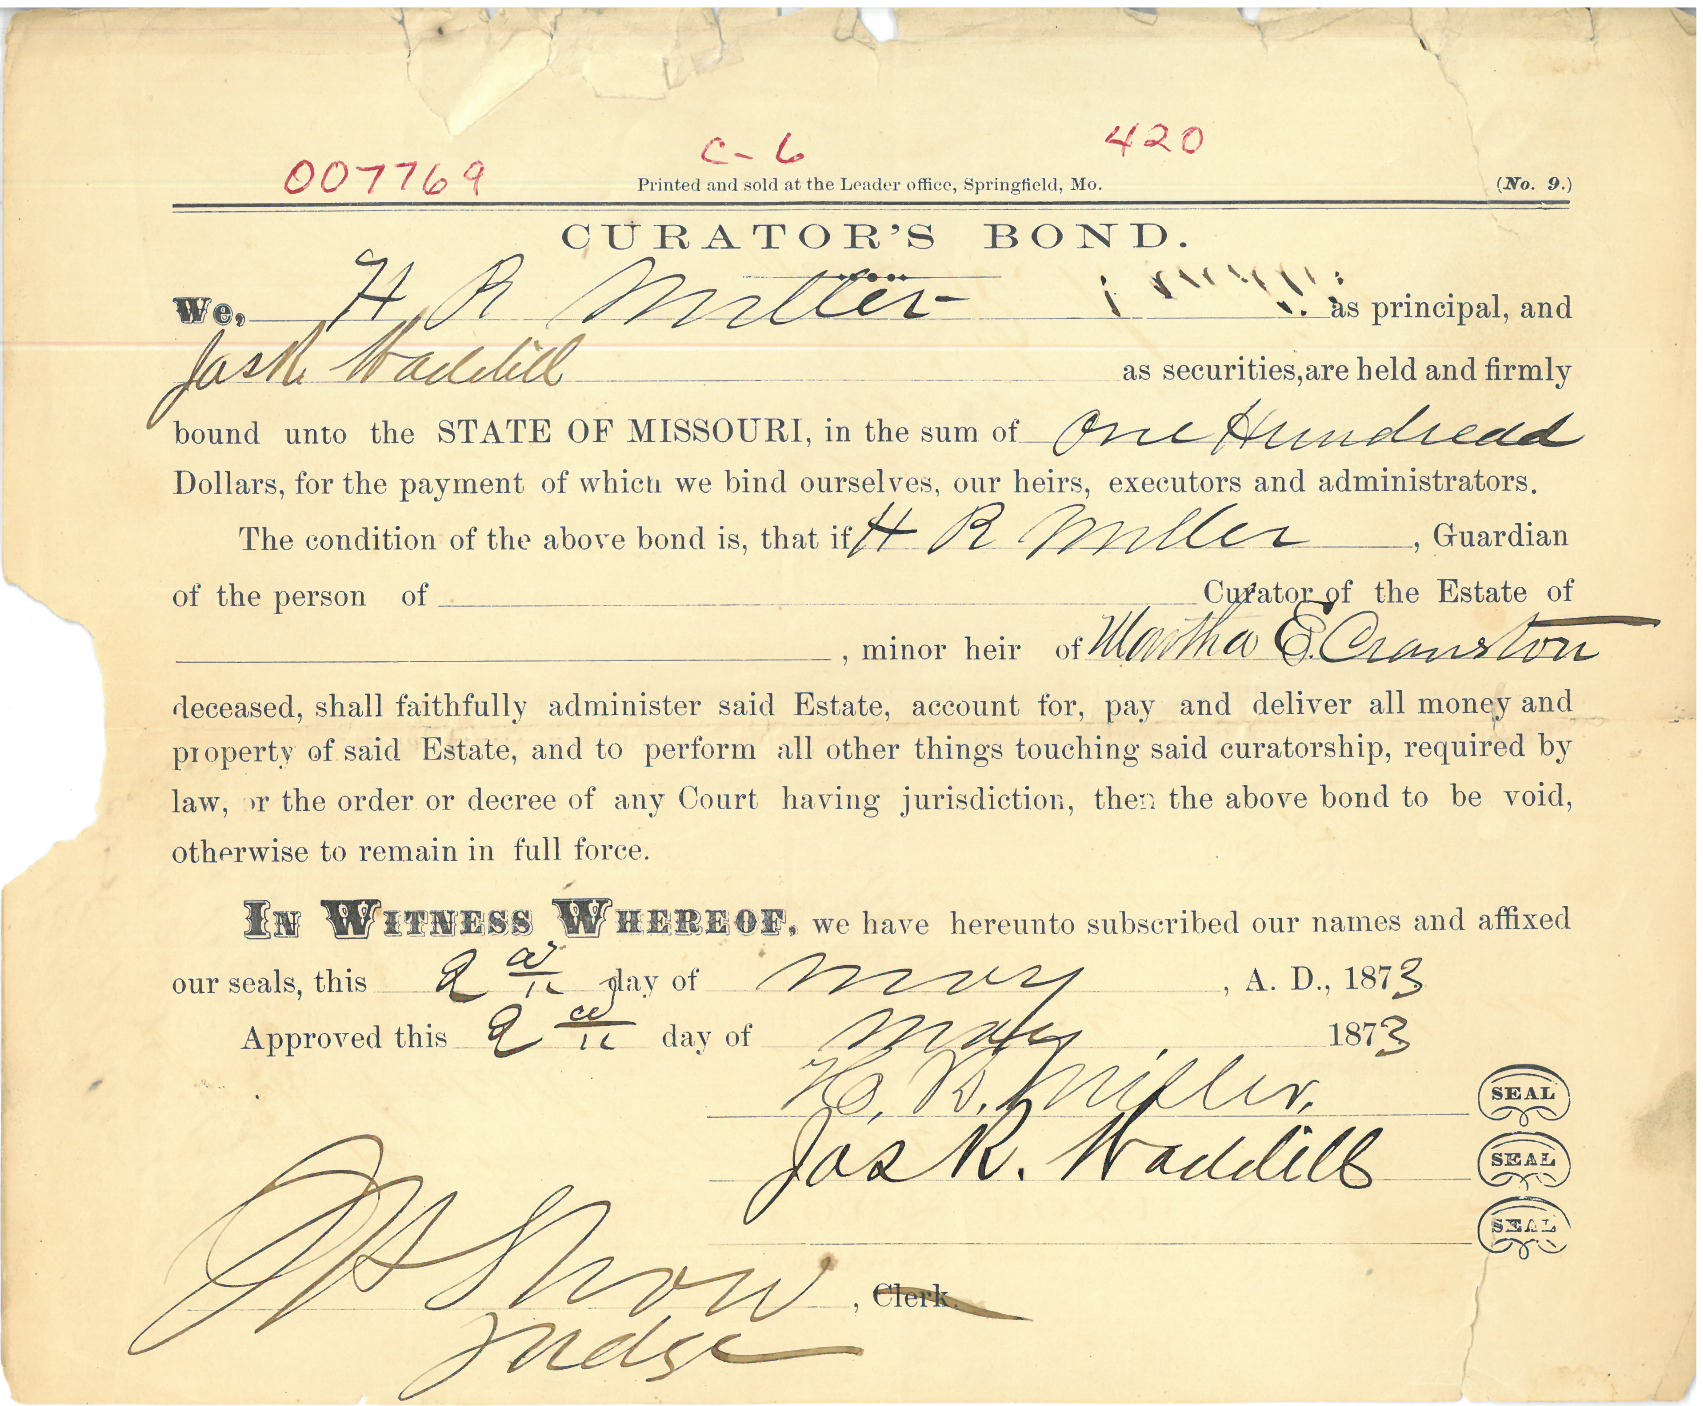 007769 C-6 420
Printed and sold at the Leader office, Springfield, Mo. (No. 9.)
CURATOR'S BOND.
We, H R Miller as principal, and
Jas R. Waddill as securities, are held and firmly
bound unto the STATE OF MISSOURI, in the sum of One Hundread
Dollars, for the payment of which we bind ourselves, our heirs, executors and administrators.
The condition of the above bond is, that if H R Miller, Guardian
of the person of Curator of the Estate of
, minor heir of Martha E. Cranston
deceased, shall faithfully administer said Estate, account for, pay and deliver all money and
property of said Estate, and to perform all other things touching said curatorship, required by
law, or the order or decree of any Court having jurisdiction, then the above bond to be void,
otherwise to remain in full force.
IN WITNESS WHEREOF, we have hereunto subscribed our names and affixed
our seals, this 2 day of May, A. D., 1873
Approved this 2 day of May 1873
H. R. Miller. SEAL
Jas R. Waddill SEAL
SEAL
Snow, Clerk.
Judge